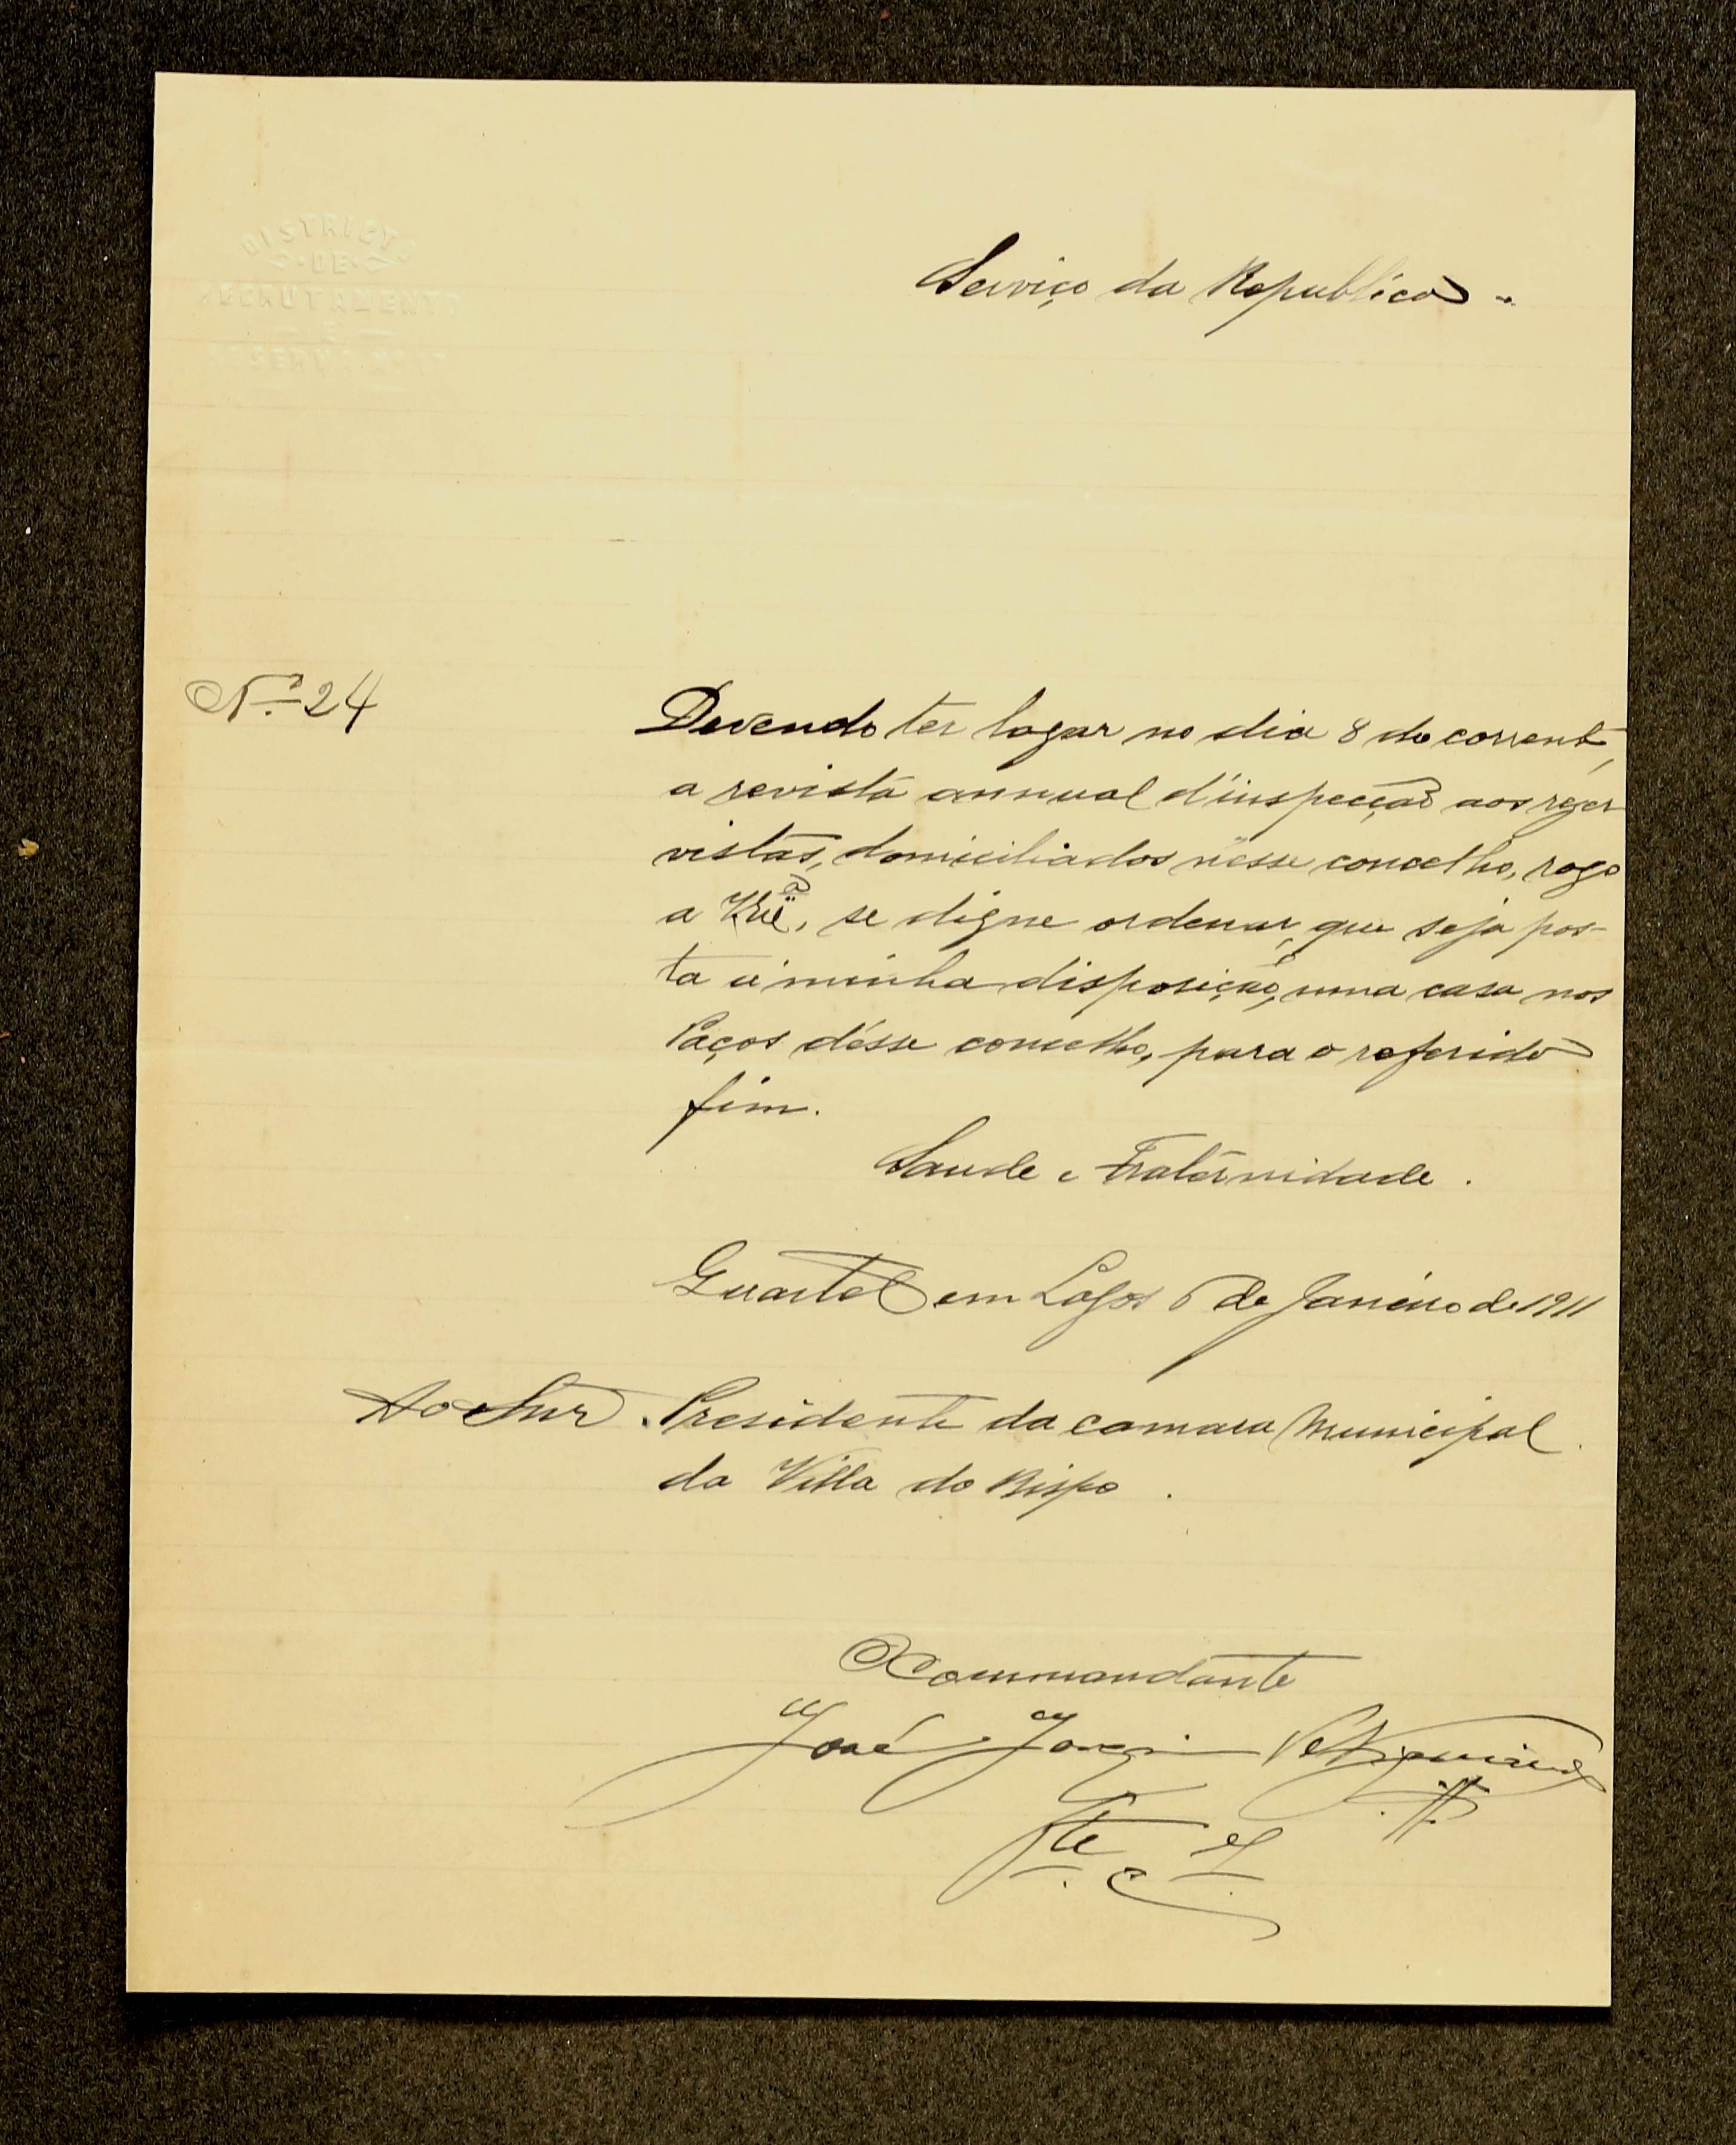 DISTRICTO
DE
RECRUTAMENTO
E
RESERVA Nº
Serviço da Republica
Nº 24
Devendo ter logar no dia 8 do corrente,
a revista annual d'inspecção aos reser
vistas, domiciliados nesse concelho, rogo
a V. Exª, se digne ordenar, que seja pos-
ta á minha disposição, uma casa nos
Paços désse concelho, para o referido
fim.
Saude e Fraternidade.
Quartel em Lagos 6 de Janeiro de 1911
Ao Snr. Presidente da camara Municipal
da Villa do Bispo.
O Commandante
José Joaquim